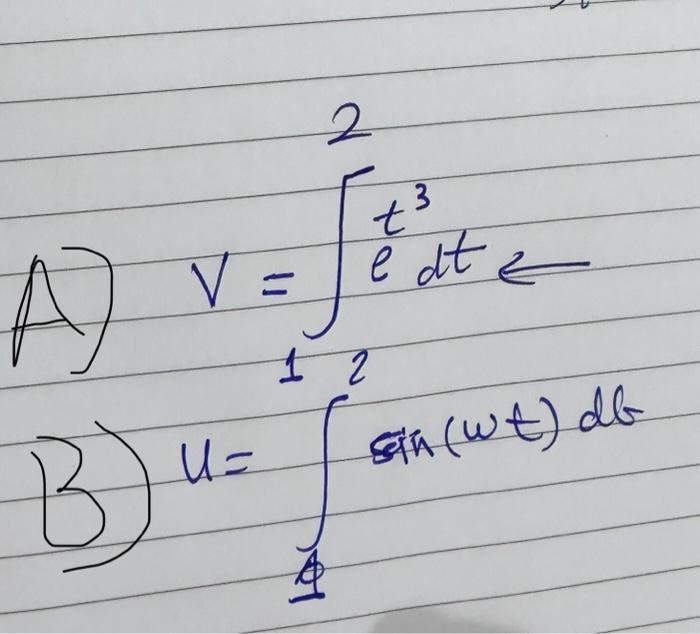 A) V = ∫₁² e^{t³} dt ←
B) u = ∫₁² sin(wt) dt